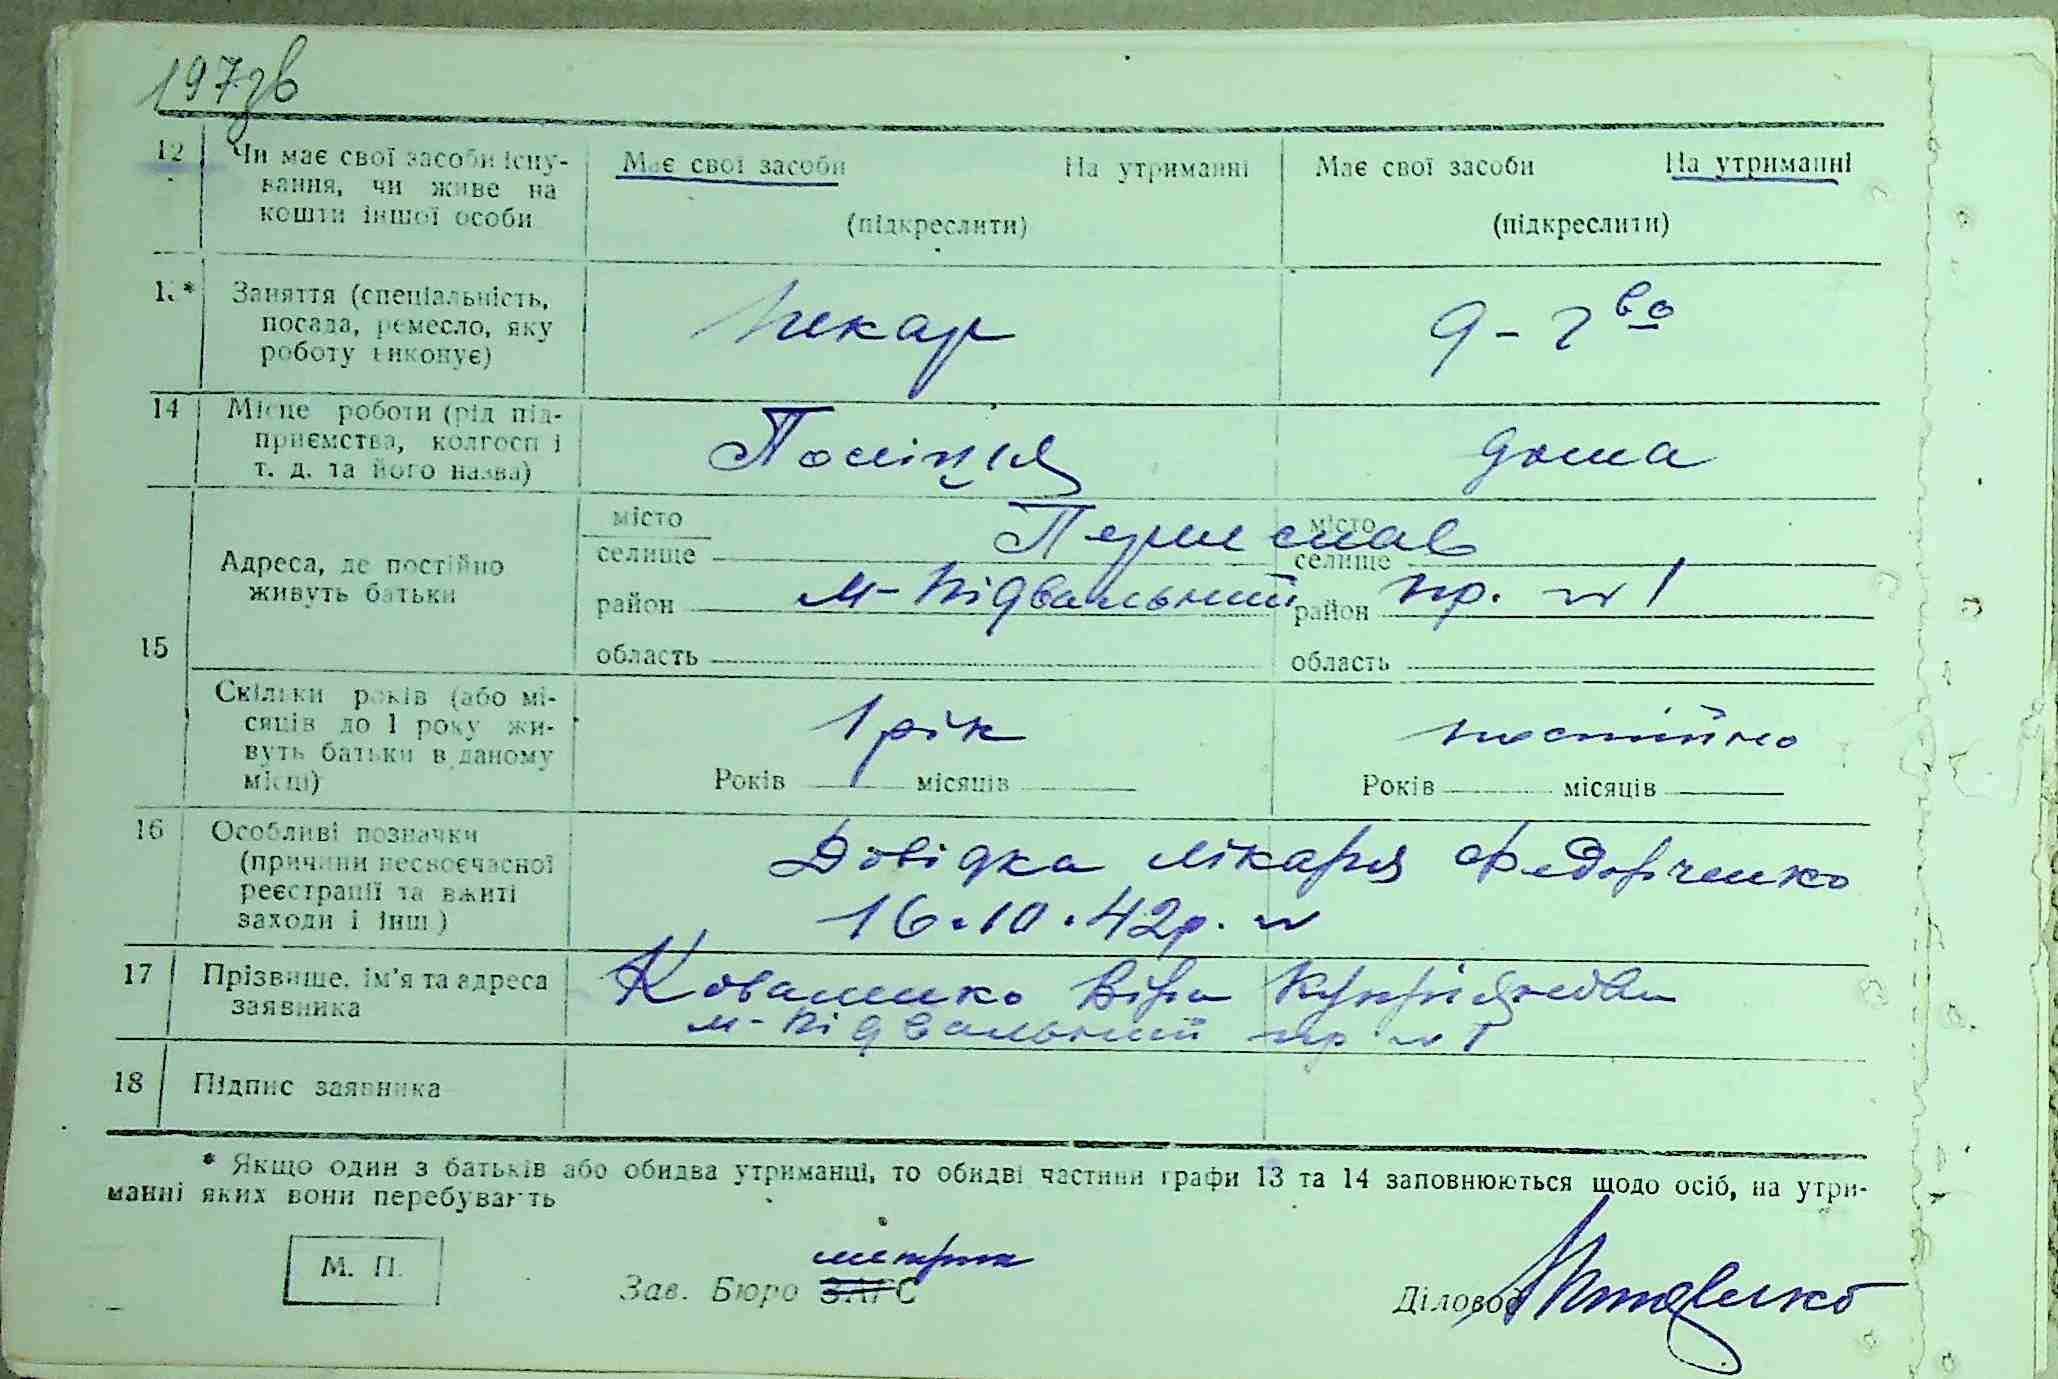 197зв
12 Чи має свої засоби існу- Має свої засоби На утриманні Має свої засоби На утриманні
вання, чи живе на
кошти іншої особи (підкреслити) (підкреслити)
13* Заняття (спеціальність,
посада, ремесло, яку пекар д-г во
роботу виконує)
14 Місце роботи (рід під-
приємства, колгосп і Поліція дома
т. д. та його назва)
місто Переяслав місто
Адреса, де постійно селище селище
живуть батьки район м-Підвальний район пр. № 1
15 область область
Скільки років (або мі-
сяців до 1 року жи- 1 рік постійно
вуть батьки в даному
місці) Років місяців Років місяців
16 Особливі позначки
(причини несвоєчасної Довідка лікаря Федорченко
реєстрації та вжиті
заходи і інш.) 16.10.42р. №
17 Прізвище, ім'я та адреса Коваленко Віра Купріянова
заявника м-Підвальний пр № 1
18 Підпис заявника
* Якщо один з батьків або обидва утриманці, то обидві частини графи 13 та 14 заповнюються щодо осіб, на утри-
манні яких вони перебувають
метрик
М. П. Зав. Бюро ЗАГС Діловод